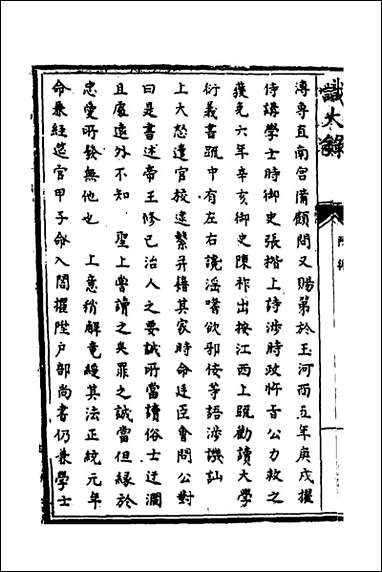 識大錄
溥專直南宮備顧問又賜第於玉河西五年庚戌擢
侍講學士時御史張楷上詩涉時政忤旨公力救之
獲免六年辛亥御史陳祚出按江西上疏勸讀大學
衍義書疏中有左右讒淫嗜欲邪佞等語涉譏訕
上大怒遣官校逮繫并籍其家時命廷臣會問公對
曰是書述帝王修己治人之要誠所當讀俗士迂濶
且處遠外不知　聖上嘗讀之矣罪之誠當但緣於
忠愛所發無他也　上意稍解竟緩其法正統元年
命兼經筵官甲子命入閣擢陞户部尚書仍兼學士